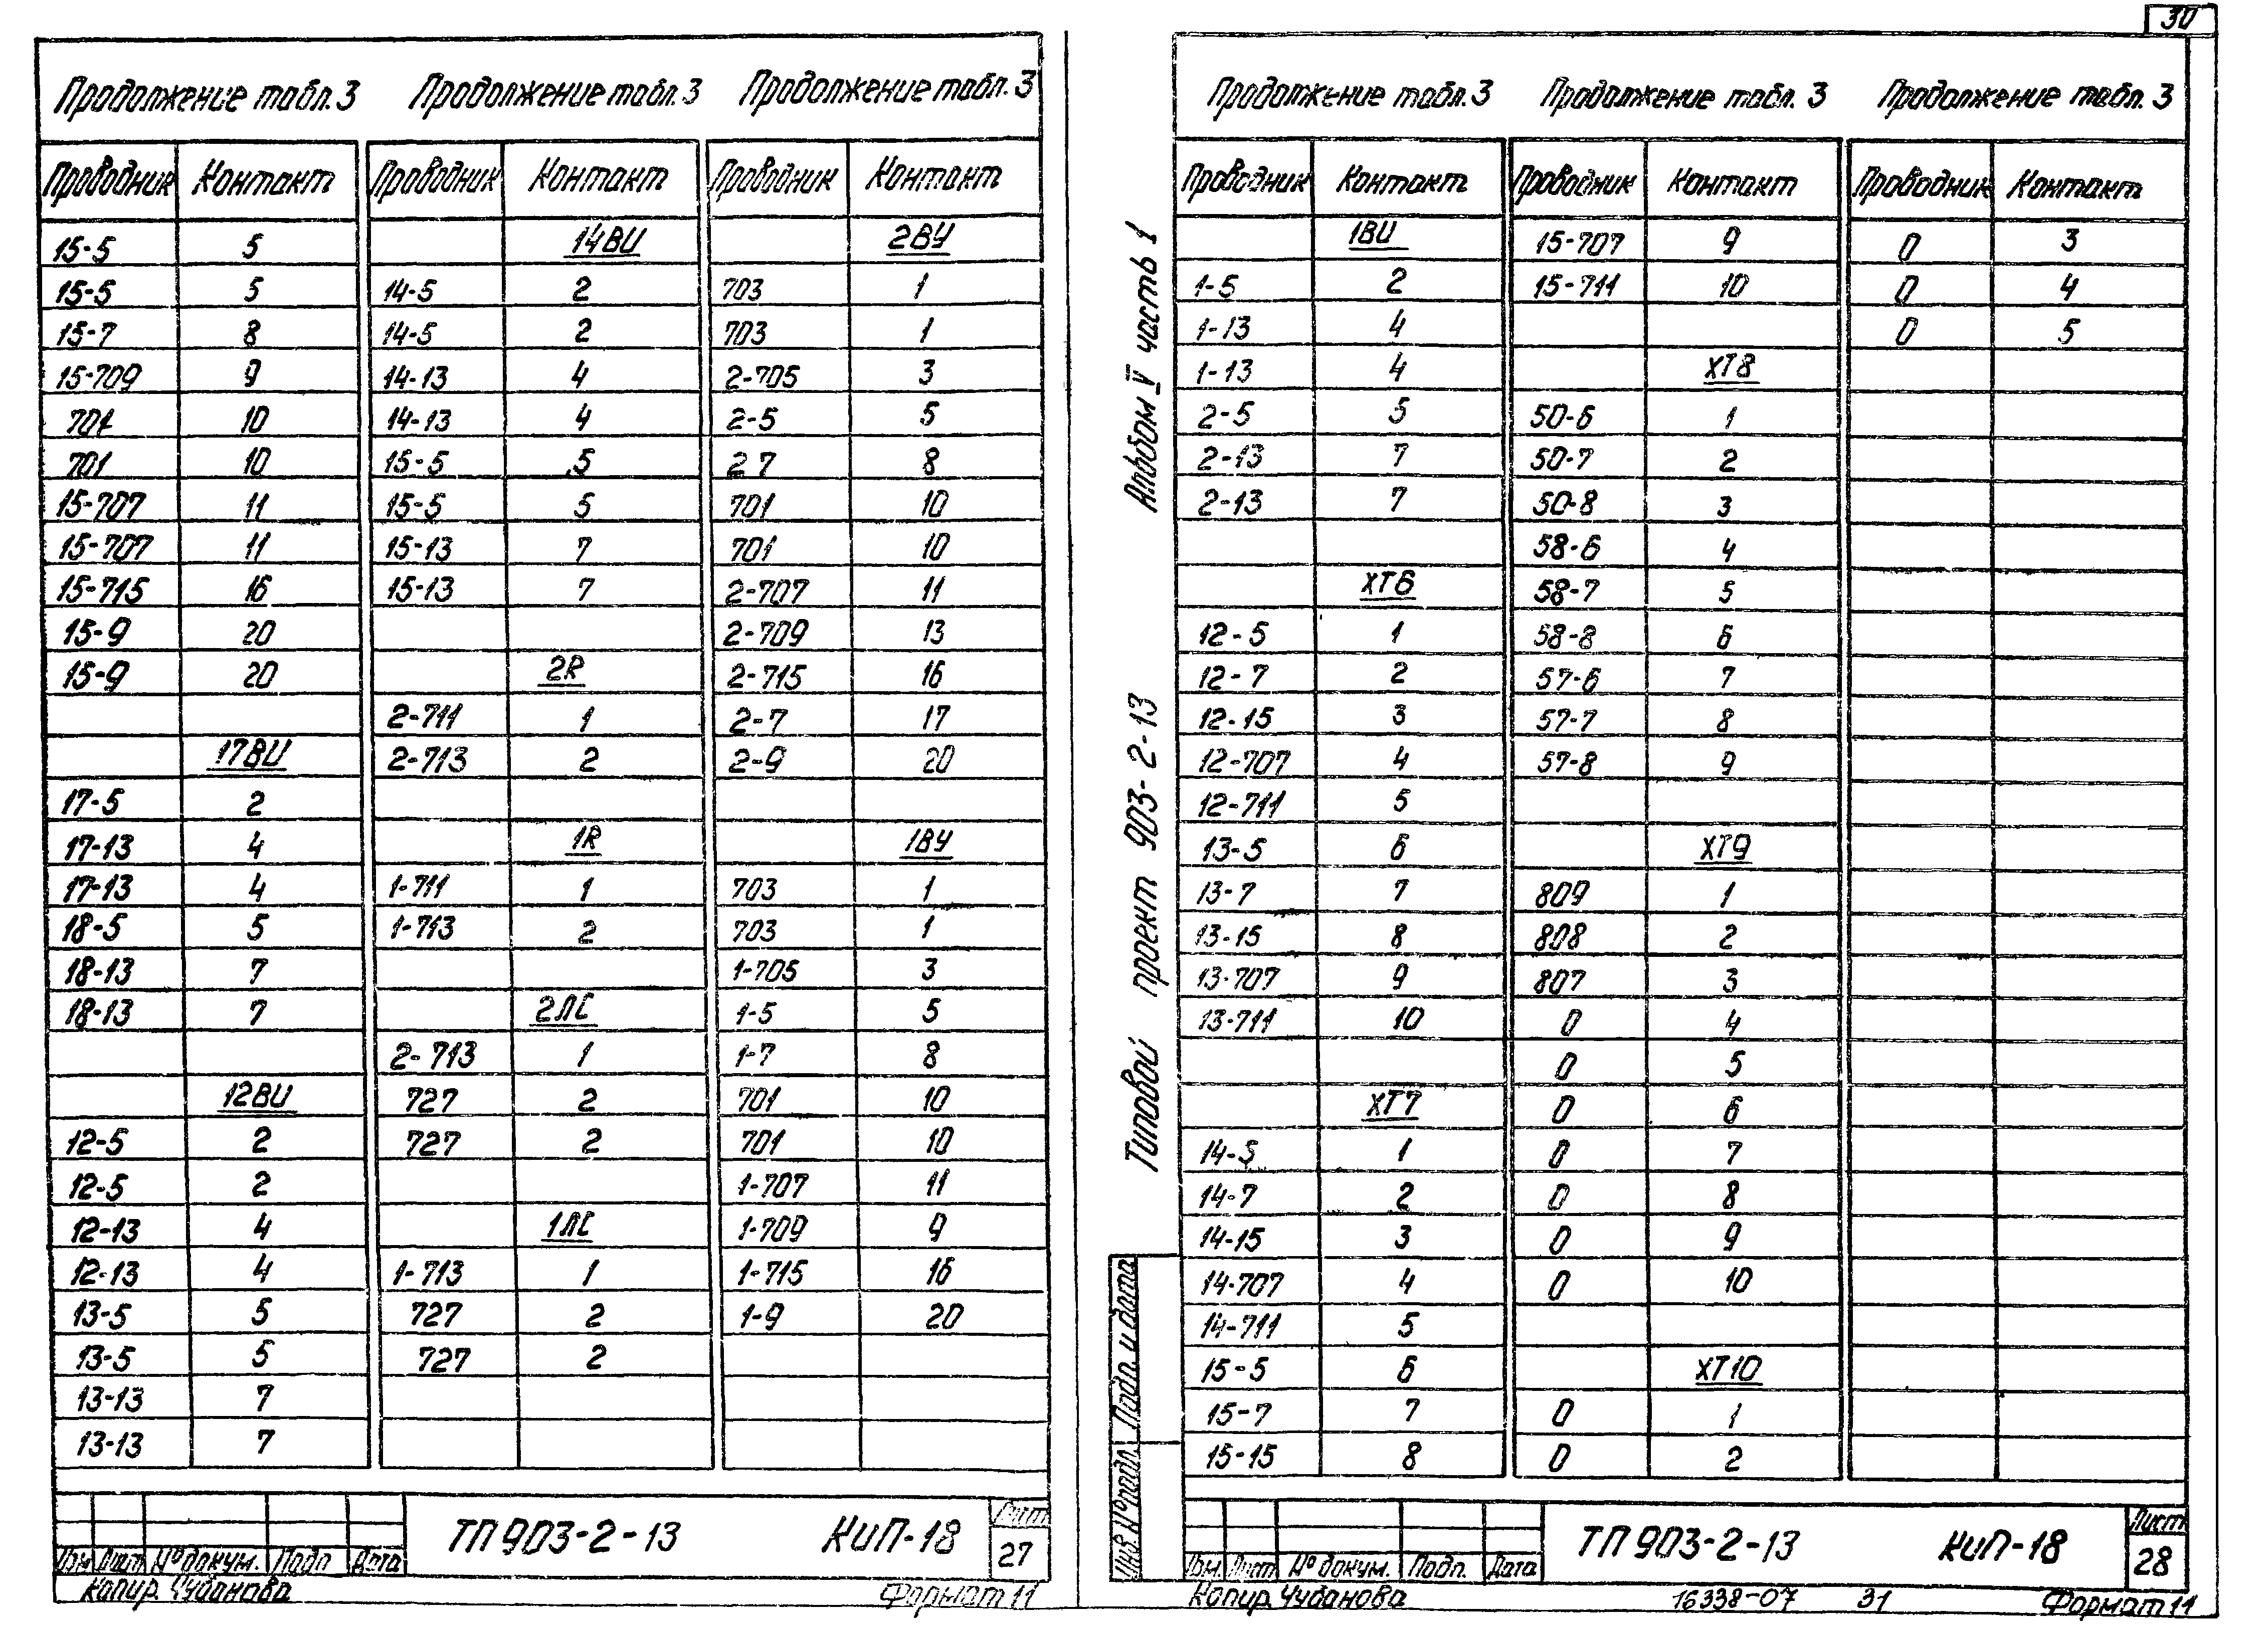 30
Продолжение табл. 3 Продолжение табл. 3 Продолжение табл. 3
Проводник Контакт Проводник Контакт Проводник Контакт
15-5 5 14ВИ 2ВУ
15-5 5 14-5 2 703 1
15-7 8 14-5 2 703 1
15-709 9 14-13 4 2-705 3
701 10 14-13 4 2-5 5
701 10 15-5 5 2 7 8
15-707 11 15-5 5 701 10
15-707 11 15-13 7 701 10
15-715 16 15-13 7 2-707 11
15-9 20 2-709 13
15-9 20 2R 2-715 16
2-711 1 2-7 17
17ВИ 2-713 2 2-9 20
17-5 2
17-13 4 1R 1ВУ
17-13 4 1-711 1 703 1
18-5 5 1-713 2 703 1
18-13 7 1-705 3
18-13 7 2ЛС 1-5 5
2-713 1 1-7 8
12ВИ 727 2 701 10
12-5 2 727 2 701 10
12-5 2 1-707 11
12-13 4 1ЛС 1-709 9
12-13 4 1-713 1 1-715 16
13-5 5 727 2 1-9 20
13-5 5 727 2
13-13 7
13-13 7
ТП 903-2-13 КиП-18 Лист 27
Изм Лист № докум. Подп Дата
Копир. Чубанова Формат 11
Альбом V часть 1
Типовой проект 903-2-13
Подп. и дата
Инв. № подл.
Продолжение табл. 3 Продолжение табл. 3 Продолжение табл. 3
Проводник Контакт Проводник Контакт Проводник Контакт
1ВИ 15-707 9 0 3
1-5 2 15-711 10 0 4
1-13 4 0 5
1-13 4 ХТ8
2-5 5 50-6 1
2-13 7 50-7 2
2-13 7 50-8 3
58-6 4
ХТ6 58-7 5
12-5 1 58-8 6
12-7 2 57-6 7
12-15 3 57-7 8
12-707 4 57-8 9
12-711 5
13-5 6 ХТ9
13-7 7 809 1
13-15 8 808 2
13-707 9 807 3
13-711 10 0 4
0 5
ХТ7 0 6
14-5 1 0 7
14-7 2 0 8
14-15 3 0 9
14-707 4 0 10
14-711 5
15-5 6 ХТ10
15-7 7 0 1
15-15 8 0 2
ТП 903-2-13 КиП-18 Лист 28
Изм. Лист № докум. Подп. Дата
Копир. Чубанова 16338-07 31 Формат 11